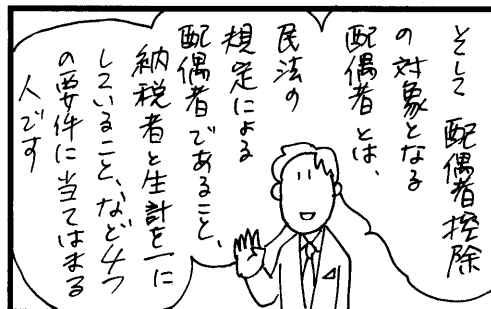 そして 配偶者控除
の対象となる
配偶者とは、
民法の
規定による
配偶者であること、
納税者と生計を一に
していること、など4つ
の要件に当てはまる
人です